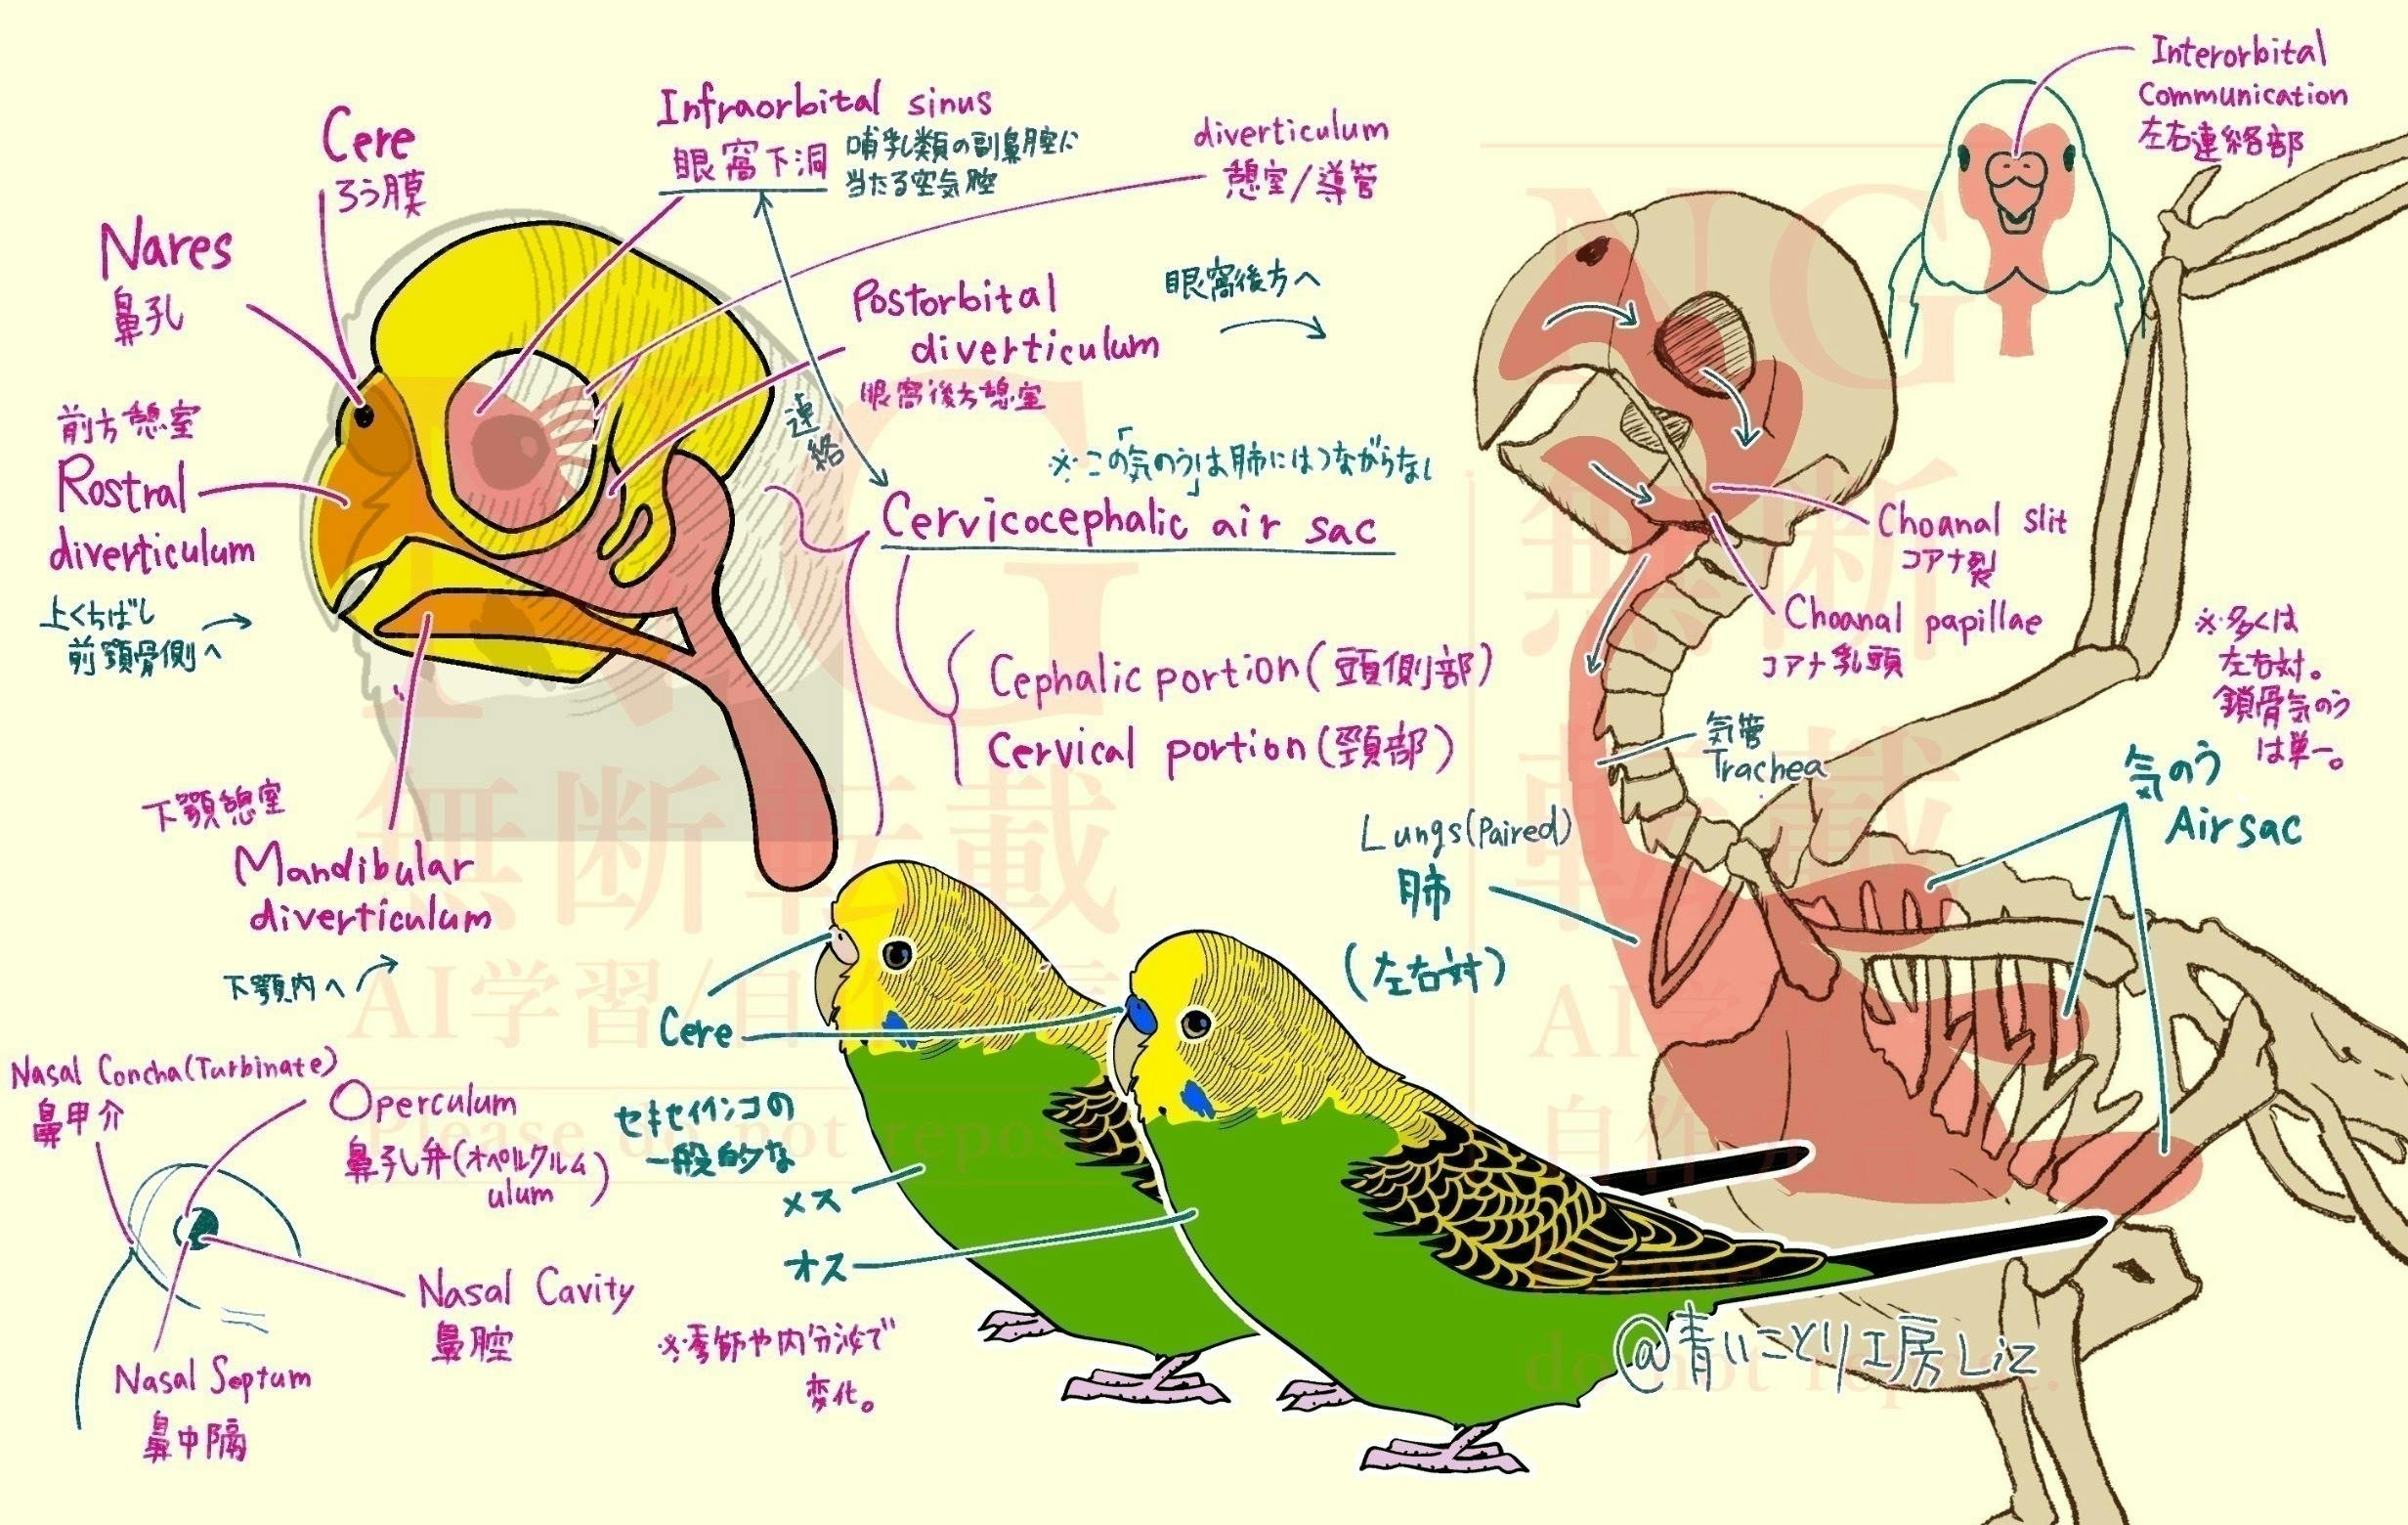 Cere
ろう膜
Nares
鼻孔
前方憩室
Rostral
diverticulum
上くちばし
前顎骨側へ
下顎憩室
Mandibular
diverticulum
下顎内へ
Infraorbital sinus
眼窩下洞
哺乳類の副鼻腔に
当たる空気腔
diverticulum
憩室/導管
Postorbital
diverticulum
眼窩後方憩室
眼窩後方へ
連絡
※この「気のう」は肺にはつながらない
Cervicocephalic air sac
Cephalic portion(頭側部)
Cervical portion(頸部)
Interorbital
Communication
左右連絡部
Choanal slit
コアナ裂
Choanal papillae
コアナ乳頭
気管
Trachea
Lungs(Paired)
肺
(左右対)
※多くは
左右対。
鎖骨気のう
は単一。
気のう
Air sac
Nasal Concha(Turbinate)
鼻甲介
Operculum
鼻孔弁(オペルクルム)
ulum
Nasal Cavity
鼻腔
Nasal Septum
鼻中隔
Cere
セキセイインコの
一般的な
メス
オス
※季節や内分泌で
変化。
@青いことり工房Liz
NG
無断転載
AI学習/自作
Please do not repos
NG
無断
転載
AI学
自作
do not repost.